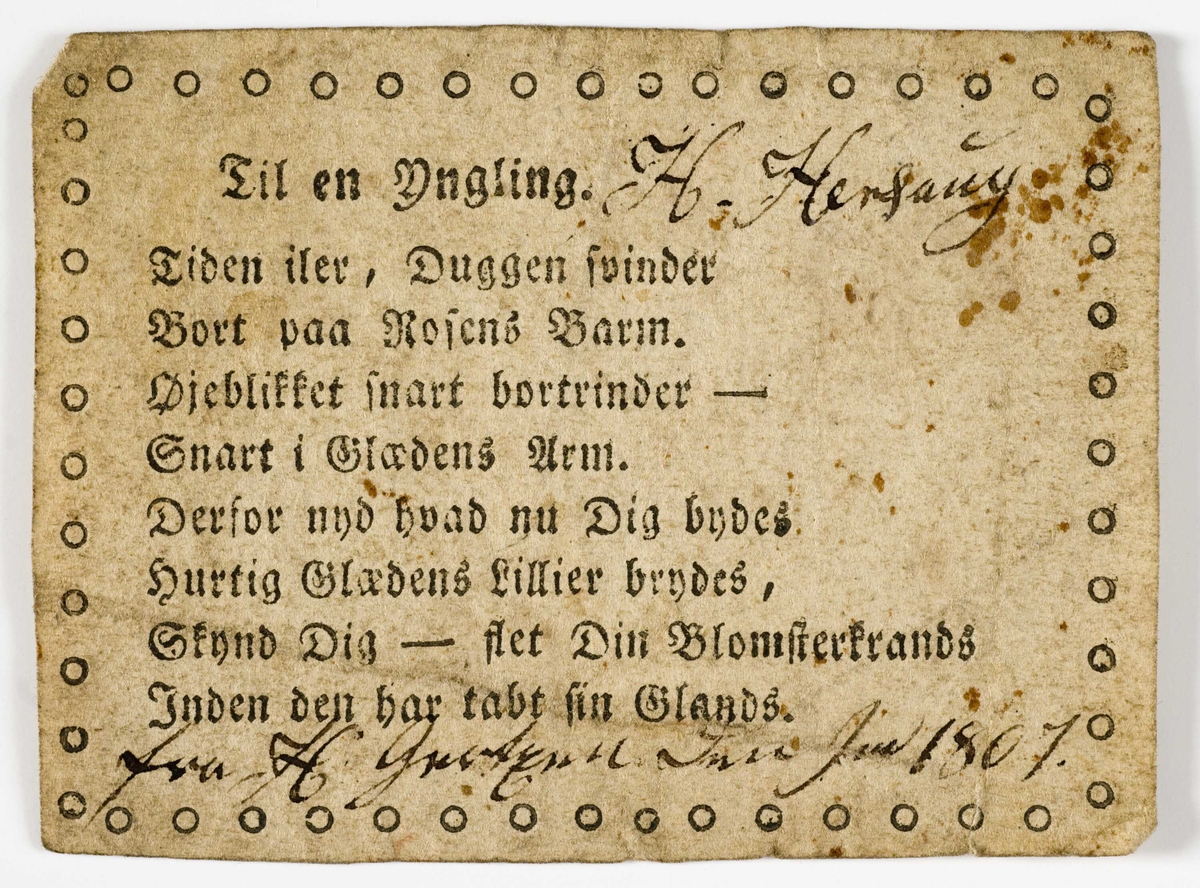 Til en Yngling. H. Herhaug
Tiden iler, Duggen svinder
Bort paa Rosens Barm.
Øjeblikket snart bortrinder —
Snart i Glædens Arm.
Derfor nyd hvad nu Dig bydes
Hurtig Glædens Lillier brydes,
Skynd Dig — flet Din Blomsterkrands
Inden den har tabt sin Glands.
fra H Den 1807.